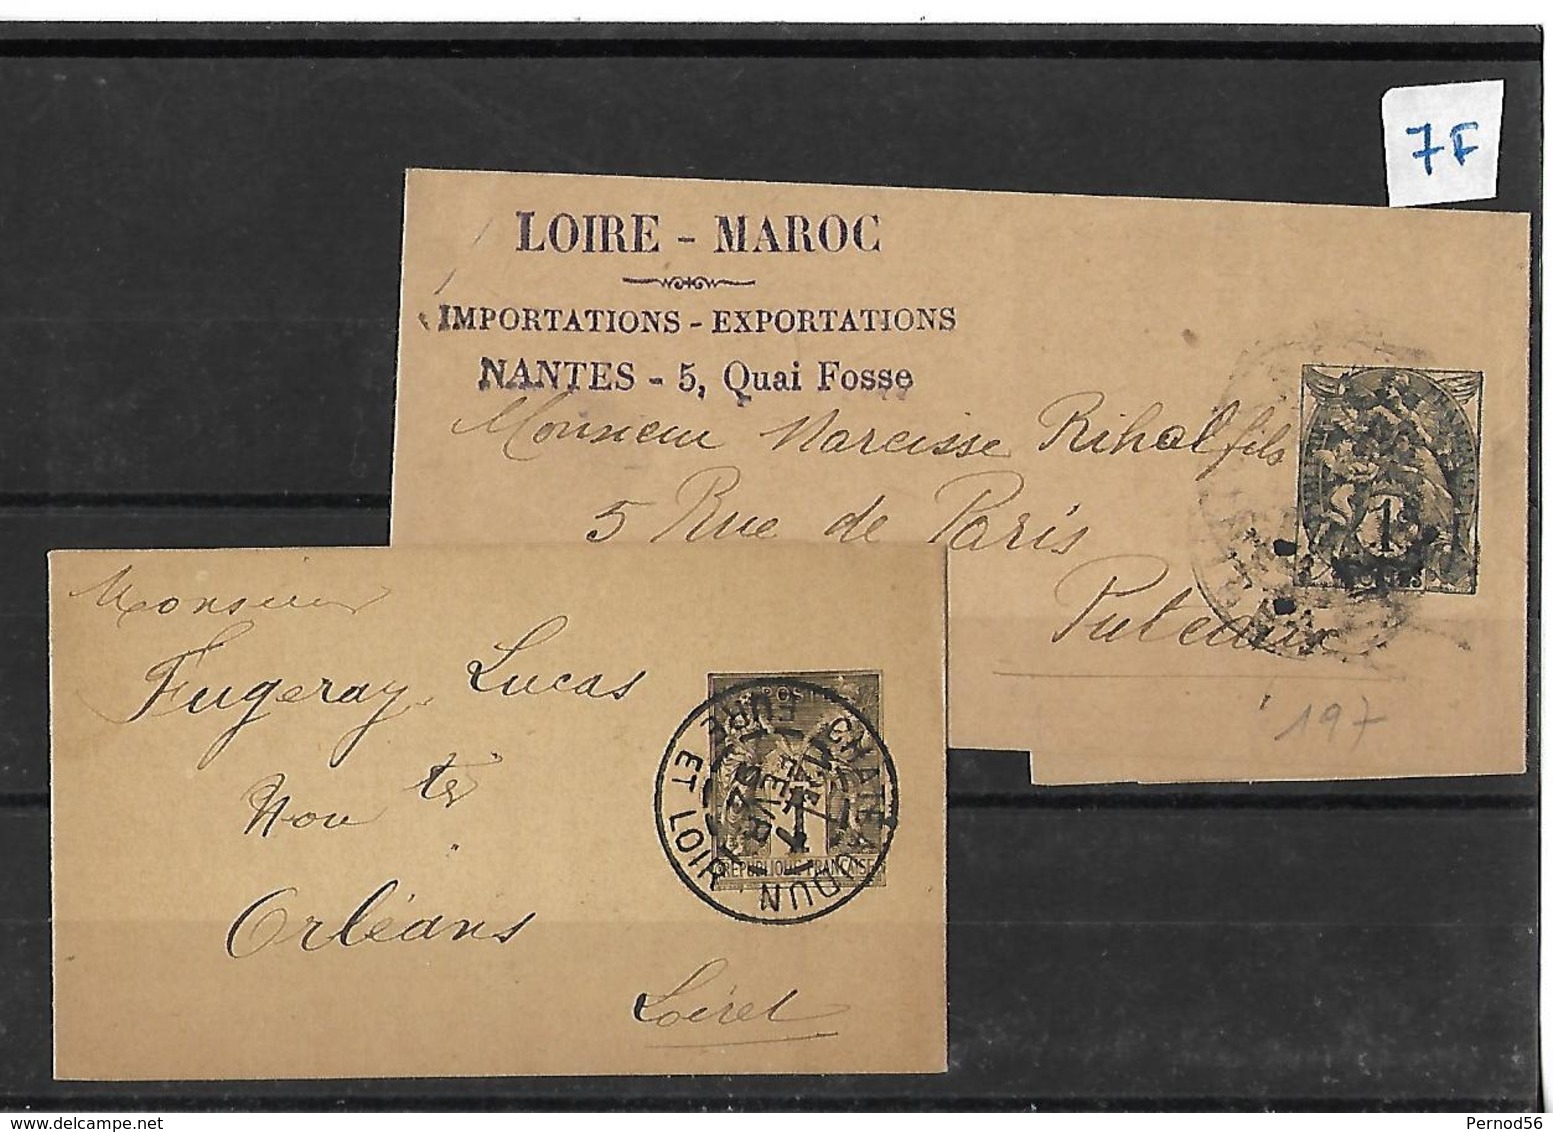 7F
LOIRE - MAROC
IMPORTATIONS - EXPORTATIONS
NANTES - 5, Quai Fosse
Monsieur Narcisse Rihal fils
5 Rue de Paris
Puteaux
197
1
Monsieur
Fugeray, Lucas
Orléans
Loiret
POSTES
1
REPUBLIQUE FRANÇAISE
CHATEAUDUN
EURE ET LOIR
delcampe.net
Pernod56